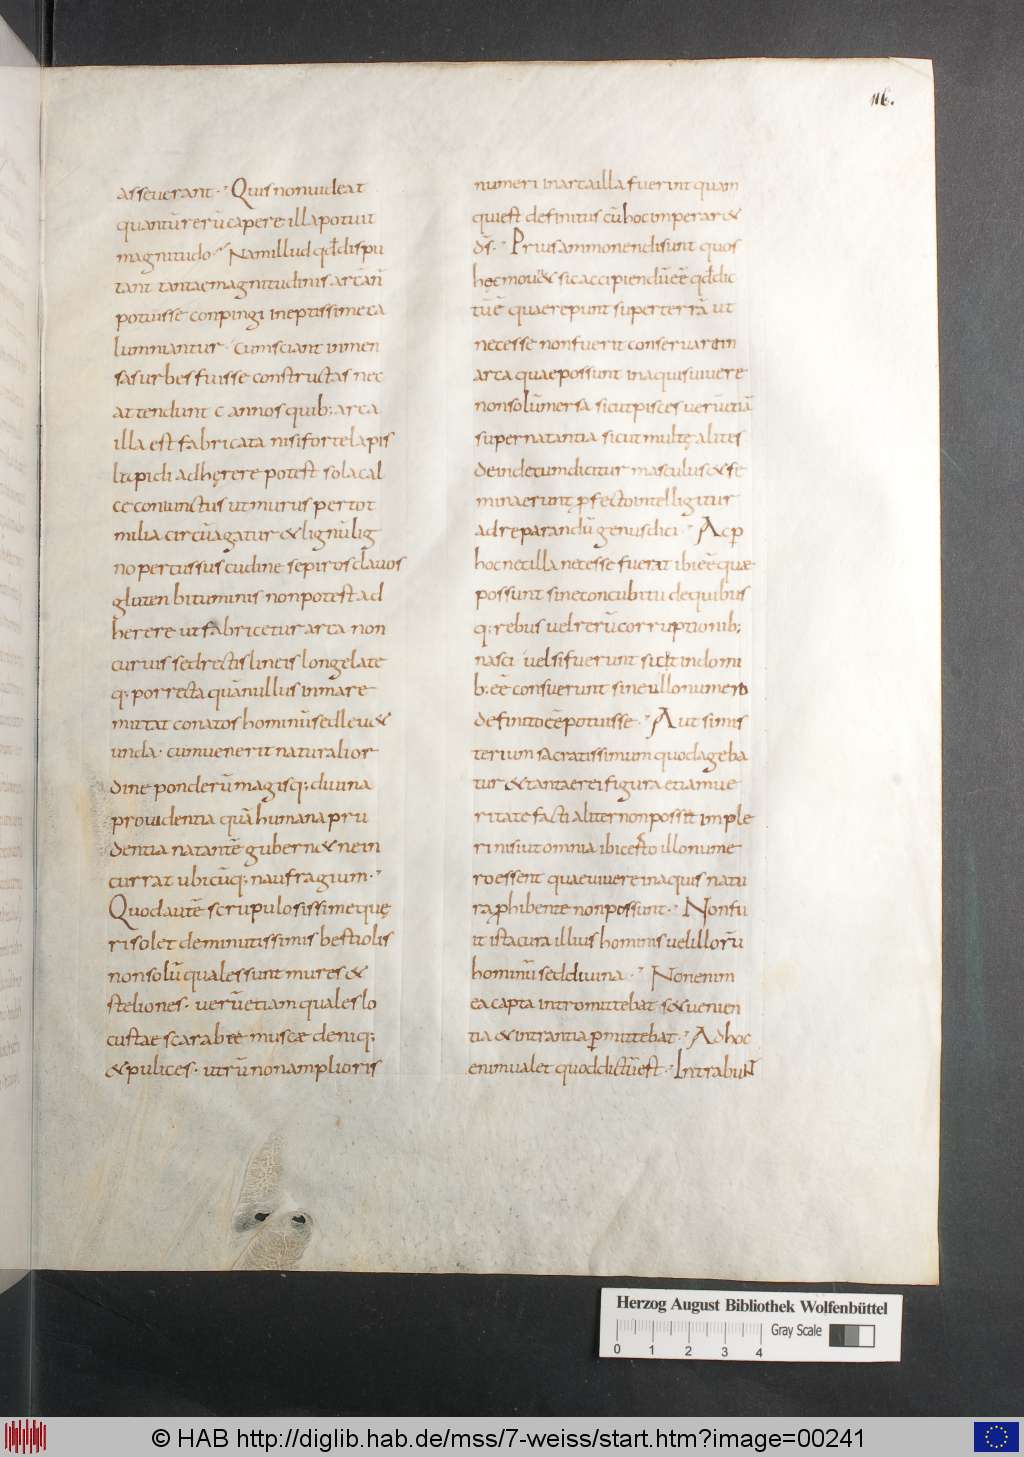 116.
asseuerant. Quis nonuideat
quantū rerū capere illa potuit
magnitudo. Nam illud qđ dispu
tant tantae magnitudinis arcā ñ
potuisse conpingi ineptissime ca
lumniantur. Cum sciant inmen
sas urbes fuisse constructas nec
attendunt c annos quib; arca
illa est fabricata nisi forte lapis
lapidi adherere potest sola cal
ce coniunctus ut murus per tot
milia circūagatur & lignū lig
no per cussus cudine se piros clauos
gluten bituminis non potest ad
herere ut fabricetur arca non
curuis sed rectis lineis longe late
q; porrecta quā nullus in mare
mittat conatos hominū sed leu&
unda. cum uenerit naturali or
dine ponderū magisq; diuina
prouidentia quā humana pru
dentia natantē gubern& ne in
currat ubicūq; naufragium.
Quod autē scrupulosissime quę
ri solet de minutissimis bestiolis
non solū quales sunt mures &
steliones. uerū etiam quales lo
custae scarabte muscæ deniq;
& pulices. utrū non amplioris
numeri in arca illa fuerint quam
qui est definitus cū hoc imperar&
d̄s. Prius ammonendi sunt quos
hęc mou& sic accipiendū eē qđ dic
tū ē quae repunt super terrā ut
necesse non fuerit conseruari in
arca quae possunt in aquis uiuere
non solū mersa sicut pisces uerū etiā
supernatantia sicut multę alites
deinde cum dicitur masculus & fe
minae erunt ꝓfecto intelligitur
ad reparandū genus dici. Ac ꝑ
hoc nec illa necesse fuerat ibi eē quæ
possunt sine concubitu de quibus
q; rebus uel rerū corruptionib;
nasci uel si fuerunt sicut in domi
b; eē consuerunt sine ullo numero
definito eē potuisse. Aut si mis
terium sacratissimum quod ageba
tur & tantae rei figura etiam ue
ritate facti aliter non possit imple
ri nisi ut omnia ibi certo illo nume
ro essent quae uiuere in aquis natu
ra ꝓhibente non possunt. Non fu
it ista cura illius hominis uel illorū
hominū sed diuina. Non enim
ea capta intromittebat s& uenien
tia & intrantia ꝑmittebat. Ad hoc
enim ualet quod dictū est. Intrabunt
Herzog August Bibliothek Wolfenbüttel
Gray Scale
0 1 2 3 4
© HAB http://diglib.hab.de/mss/7-weiss/start.htm?image=00241